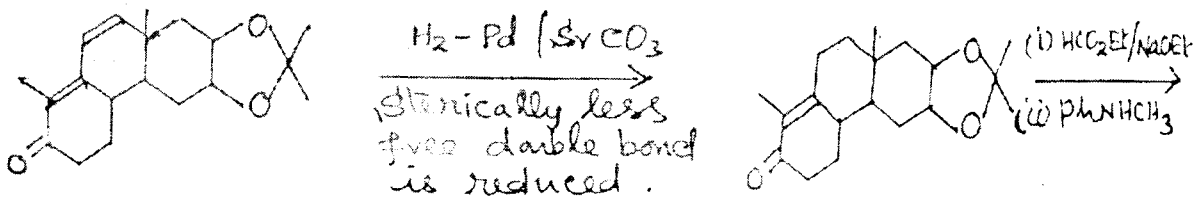 H2-Pd/SrCO3
Sterically less
free double bond
is reduced.
(i) HCO2Et/NaOEt
(ii) PhNHCH3
O
O
O
O
O
O